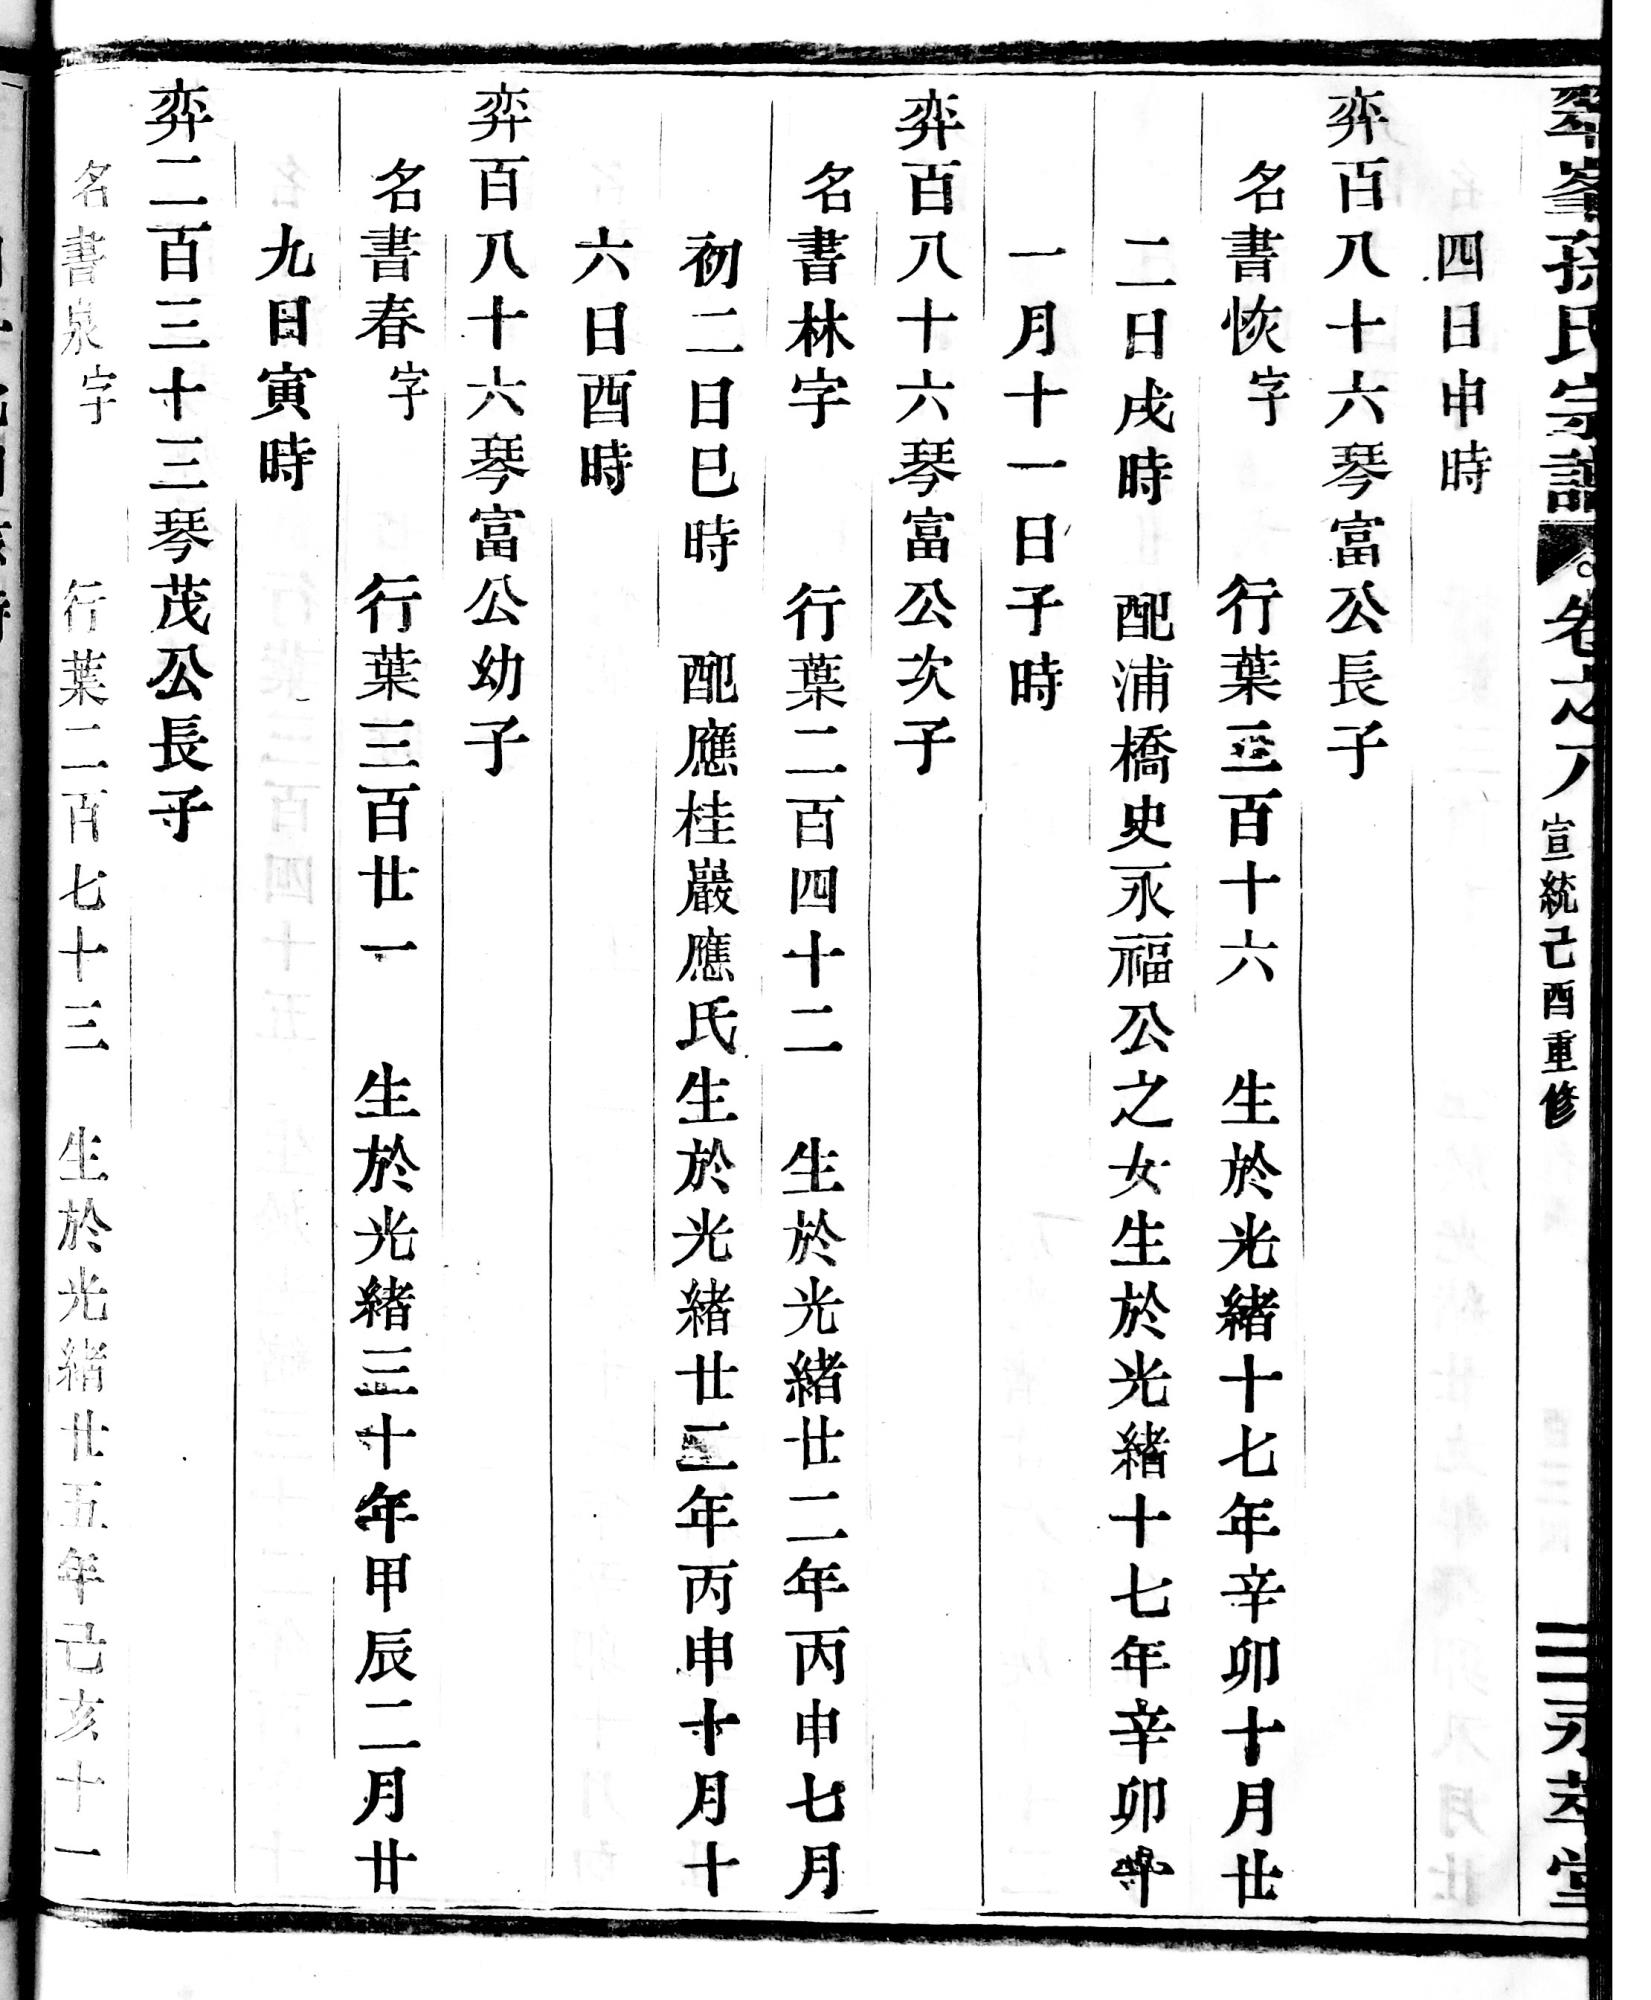 翠峯孫氏宗譜 卷之八 宣統己酉重修 二 永萃堂
四日申時
弈百八十六琴富公長子
名書恢字 行葉三百十六 生於光緒十七年辛卯十月廿
二日戌時 配浦橋史永福公之女生於光緒十七年辛卯十
一月十一日子時
弈百八十六琴富公次子
名書林字 行葉二百四十二 生於光緒廿二年丙申七月
初二日巳時 配應桂巖應氏生於光緒廿二年丙申十月十
六日酉時
弈百八十六琴富公幼子
名書春字 行葉三百廿一 生於光緒三十年甲辰二月廿
九日寅時
弈二百三十三琴茂公長子
名書泉字 行葉二百七十三 生於光緒廿五年己亥十一